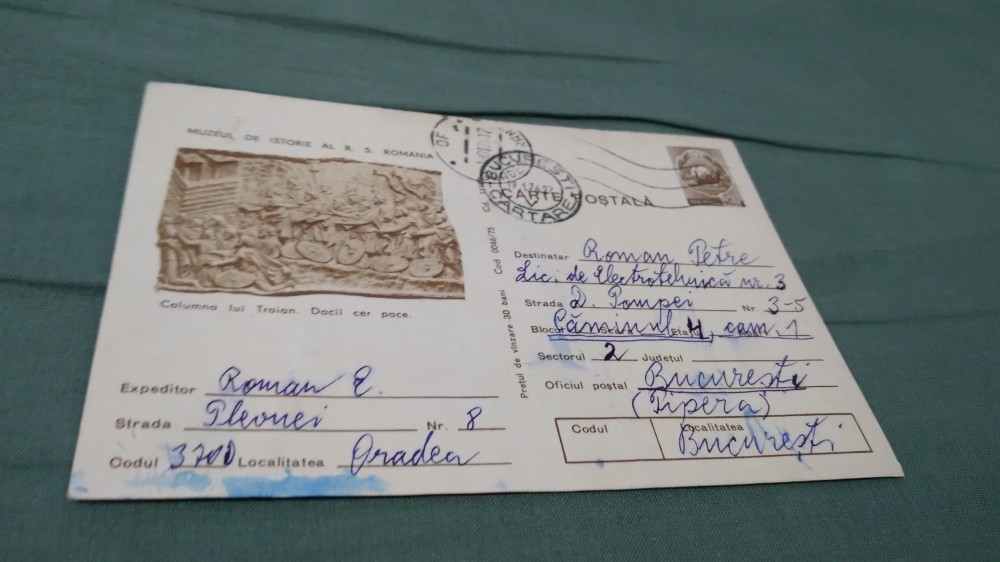 MUZEUL DE ISTORIE AL R. S. ROMANIA
Columna lui Traian. Dacii cer pace.
Expeditor Roman E.
Strada Plevnei Nr. 8
Codul 3700 Localitatea Oradea
OF
BUCUREȘTI
CARTARE
CARTE POȘTALĂ
Prețul de vînzare 30 bani Cod 0046/75
Destinatar Roman Petre
Lic. de Electrotehnică nr. 3
Strada D. Pompei Nr. 3-5
Blocul Căminul 4, cam. 1
Sectorul 2 Județul
Oficiul poștal București
(Pipera)
Codul Localitatea
București